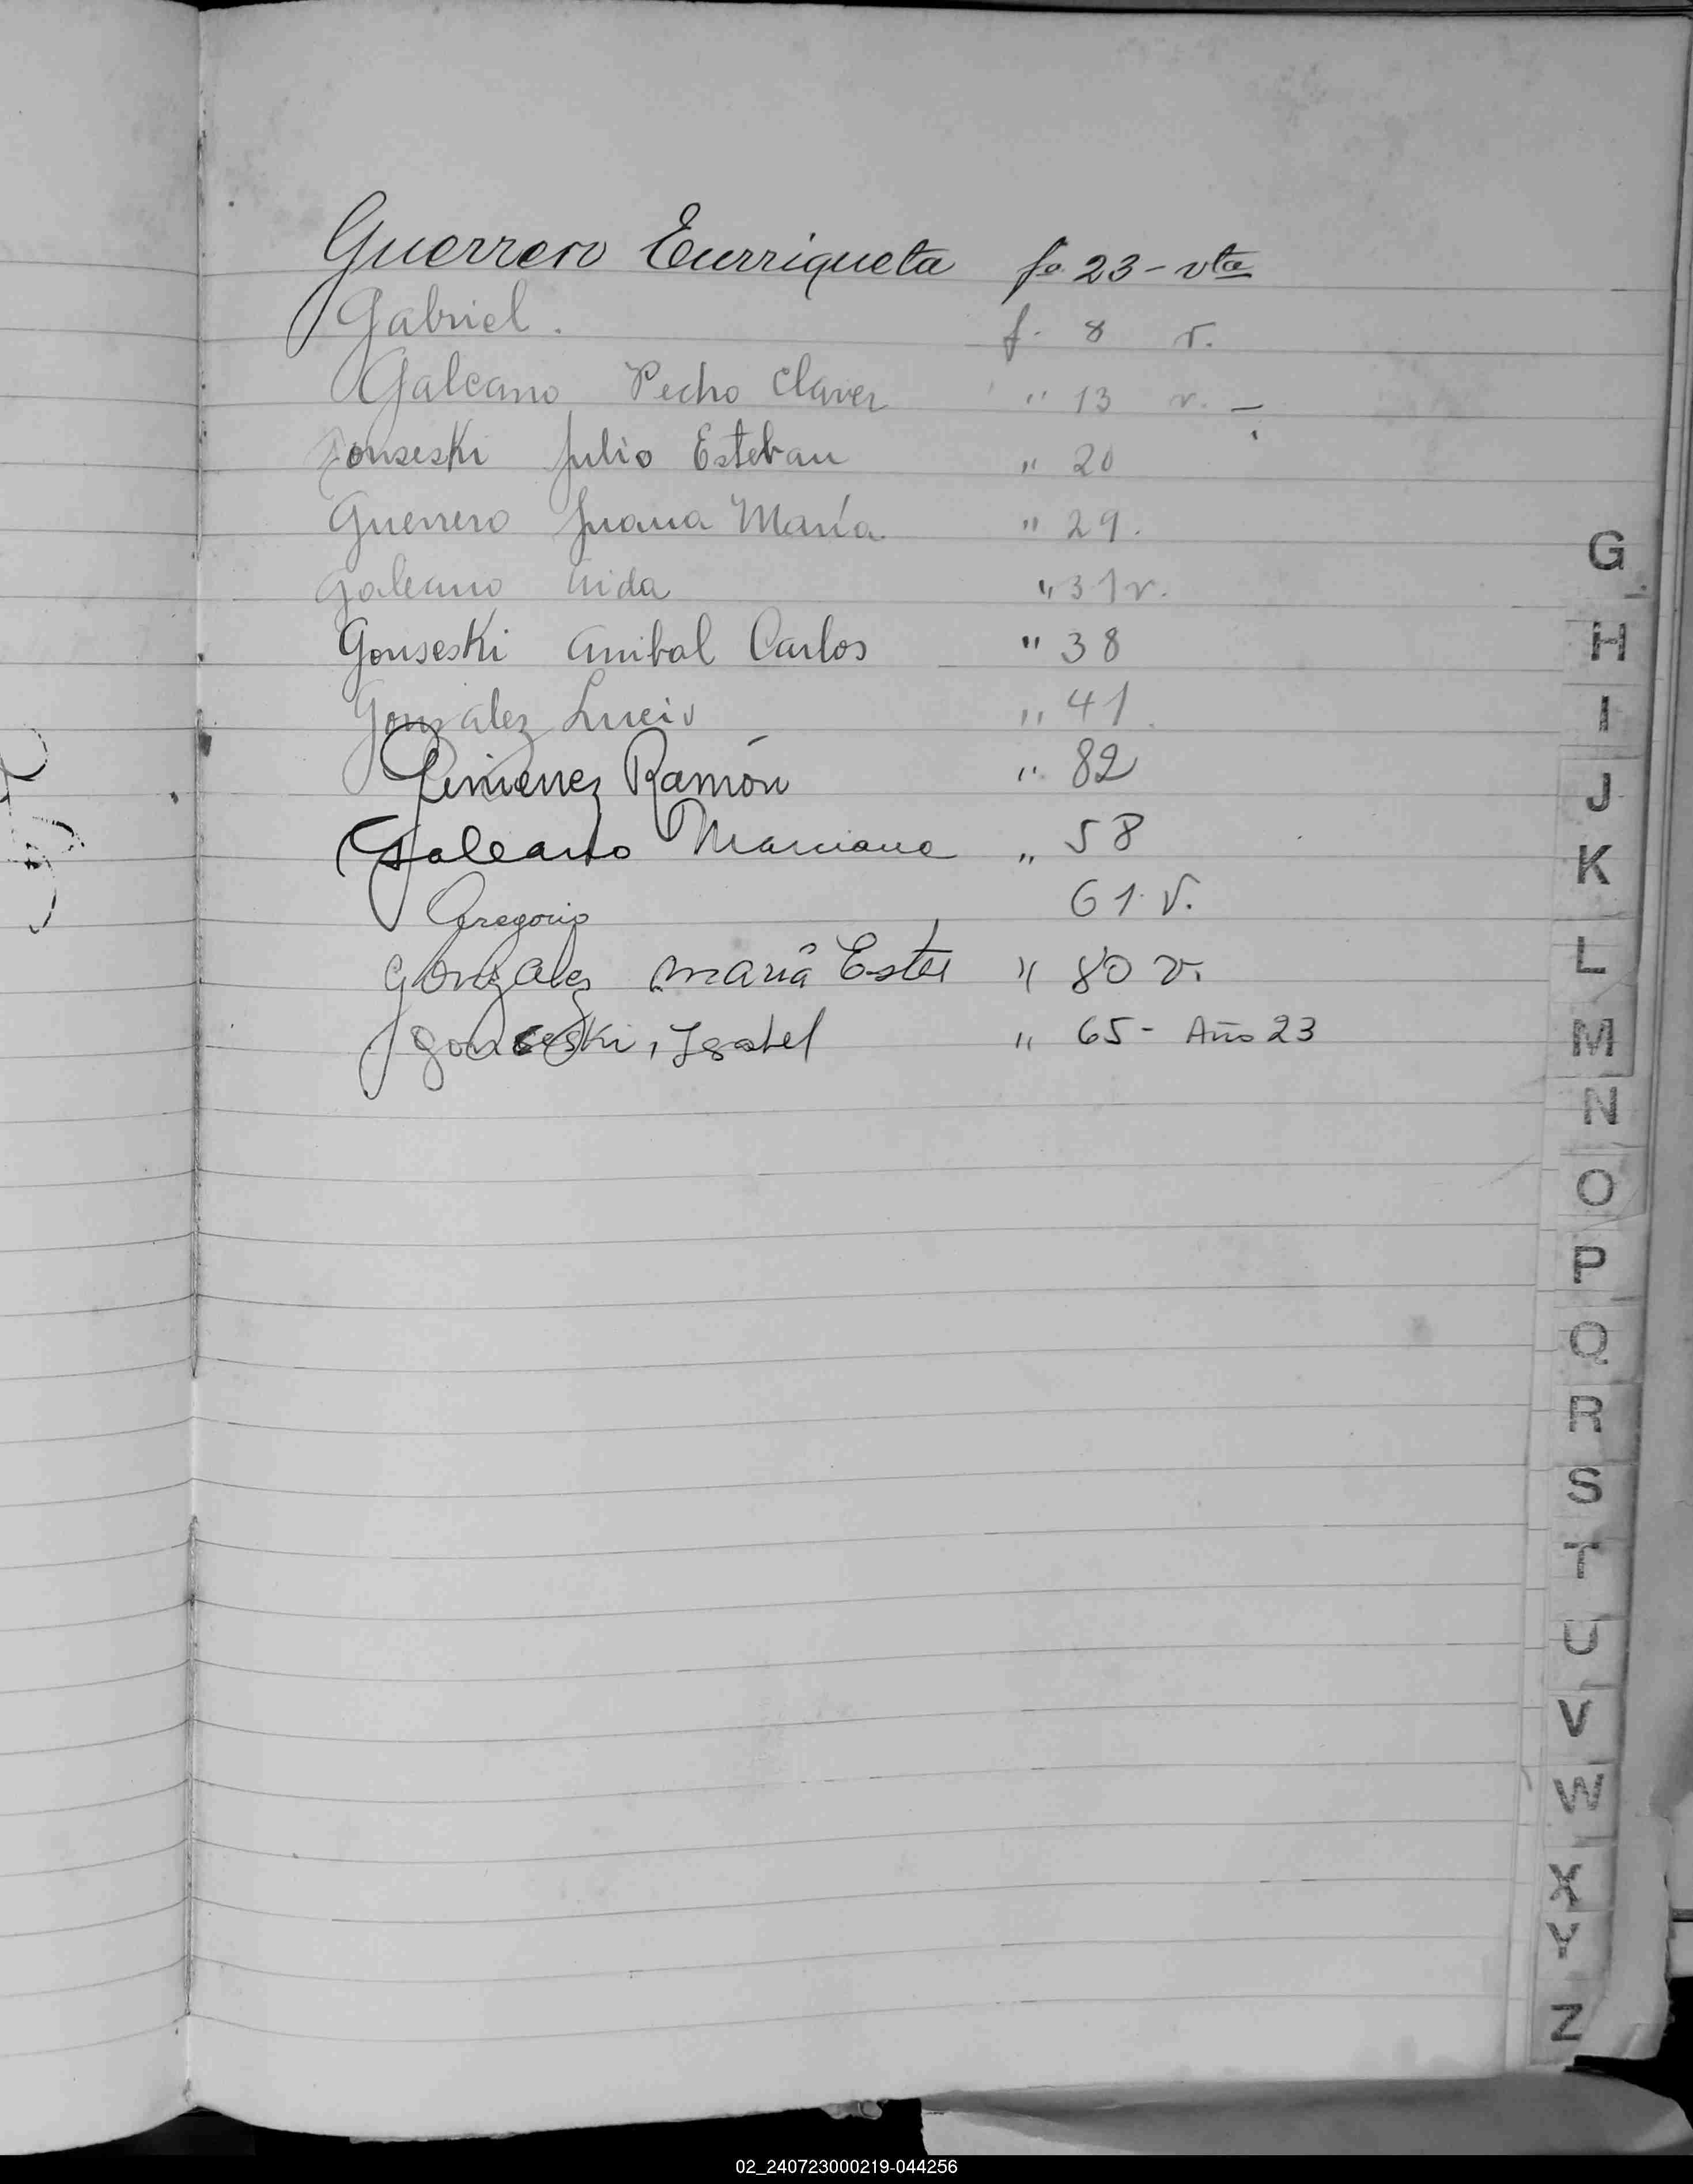 Guerrero Eurriqueta fo 23 - vta
Gabriel. f. 8 v.
Galeano Pedro Claver " 13 v. -
Gonseski Julio Esteban " 20
Guerrero Juana María " 29.
Galeano Nida " 31 v.
Gonseski Anibal Carlos " 38
Gonzalez Lucio " 41.
Gimenez Ramón " 82
Galeano Marciana " 58
Gregorio 61 v.
Gonzalez María Ester " 80 v.
Gonseski, Isabel " 65 - Año 23
G
H
I
J
K
L
M
N
O
P
Q
R
S
T
U
V
W
X
Y
Z
02_240723000219-044256